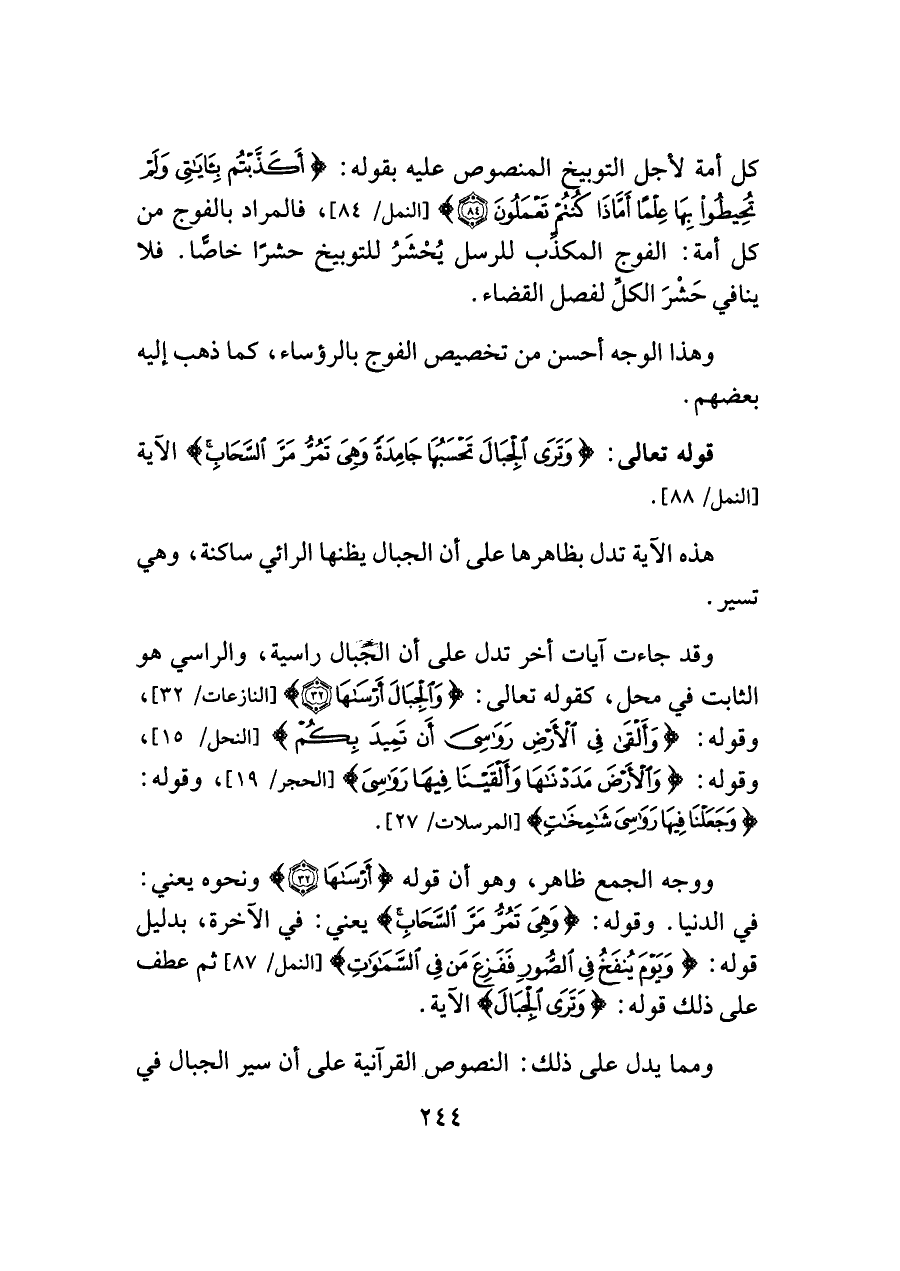 كل أمة لأجل التوبيخ المنصوص عليه بقوله: ﴿ أَكَذَّبْتُم بِـَٔايَـٰتِى وَلَمْ
تُحِيطُوا۟ بِهَا عِلْمًا أَمَّاذَا كُنتُمْ تَعْمَلُونَ ۝٨٤ ﴾ [النمل/ ٨٤]، فالمراد بالفوج من
كل أمة: الفوج المكذِّب للرسل يُحْشَرُ للتوبيخ حشرًا خاصًّا. فلا
ينافي حَشْرَ الكلِّ لفصل القضاء.
وهذا الوجه أحسن من تخصيص الفوج بالرؤساء، كما ذهب إليه
بعضهم.
قوله تعالى: ﴿ وَتَرَى ٱلْجِبَالَ تَحْسَبُهَا جَامِدَةً وَهِىَ تَمُرُّ مَرَّ ٱلسَّحَابِ ۚ﴾ الآية
[النمل/ ٨٨].
هذه الآية تدل بظاهرها على أن الجبال يظنها الرائي ساكنة، وهي
تسير.
وقد جاءت آيات أخر تدل على أن الجبال راسية، والراسي هو
الثابت في محل، كقوله تعالى: ﴿ وَٱلْجِبَالَ أَرْسَىٰهَا ۝٣٢ ﴾ [النازعات/ ٣٢]،
وقوله: ﴿ وَأَلْقَىٰ فِى ٱلْأَرْضِ رَوَٰسِىَ أَن تَمِيدَ بِكُمْ ﴾ [النحل/ ١٥]،
وقوله: ﴿ وَٱلْأَرْضَ مَدَدْنَـٰهَا وَأَلْقَيْنَا فِيهَا رَوَٰسِىَ ﴾ [الحجر/ ١٩]، وقوله:
﴿ وَجَعَلْنَا فِيهَا رَوَٰسِىَ شَـٰمِخَـٰتٍ ﴾ [المرسلات/ ٢٧].
ووجه الجمع ظاهر، وهو أن قوله ﴿ أَرْسَىٰهَا ۝٣٢ ﴾ ونحوه يعني:
في الدنيا. وقوله: ﴿ وَهِىَ تَمُرُّ مَرَّ ٱلسَّحَابِ ۚ﴾ يعني: في الآخرة، بدليل
قوله: ﴿ وَيَوْمَ يُنفَخُ فِى ٱلصُّورِ فَفَزِعَ مَن فِى ٱلسَّمَـٰوَٰتِ ﴾ [النمل/ ٨٧] ثم عطف
على ذلك قوله: ﴿ وَتَرَى ٱلْجِبَالَ ﴾ الآية.
ومما يدل على ذلك: النصوص القرآنية على أن سير الجبال في
٢٤٤